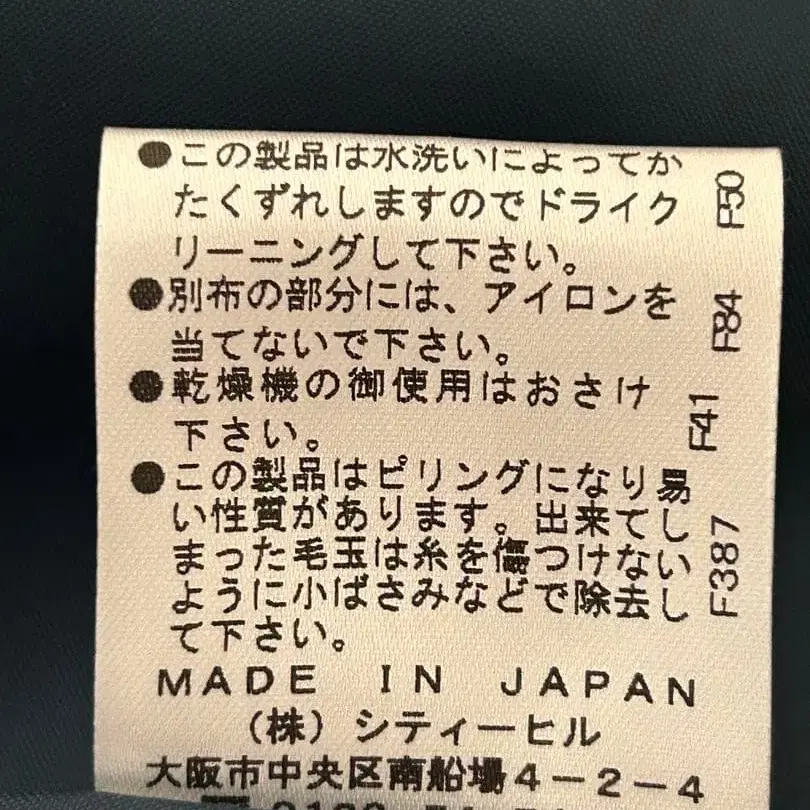 ●この製品は水洗いによってか
たくずれしますのでドライク
リーニングして下さい。
●別布の部分には、アイロンを
当てないで下さい。
●乾燥機の御使用はおさけ
下さい。
●この製品はピリングになり易
い性質があります。出来てし
まった毛玉は糸を傷つけない
ように小ばさみなどで除去し
て下さい。
MADE IN JAPAN
(株)シティーヒル
大阪市中央区南船場4-2-4
F50
F84
F41
F387